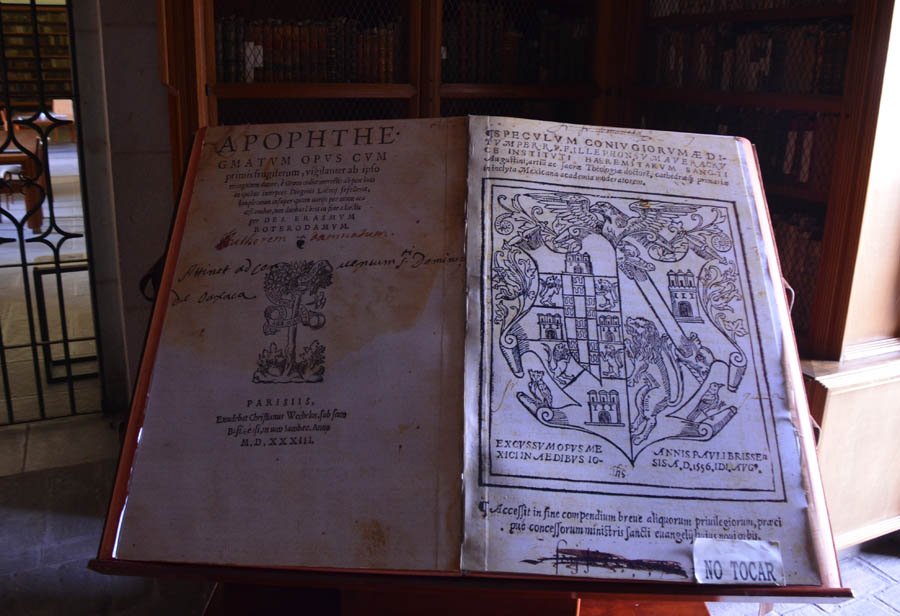 APOPHTHE-
GMATUM OPUS CUM
primis frugiferum, vigilanter ab ipso
recognitum autore, è Græco codice correctis aliquot locis
in quibus interpres Diogenis Laertij fefellerat,
locupletatum insuper quum varijs per totum ac-
cessionibus, tum duobus libris in fine adiectis
per DES. ERASMUM
ROTERODAMUM.
Authorem damnatum.
Attinet ad conventum S.ti Domingi
de Oaxaca
PARISIIS,
Excudebat Christianus Wechelus, sub scuto
Basileensi, in vico Iacobeo. Anno
M. D. XXXIII.
¶SPECULUM CONIUGIORUM ÆDI
TUM PER R. P. F. ILLEPHONSUM A VERACRU
CE INSTITUTI HÆREMITARUM SANCTI
Augustini, artiũ ac sacræ Theologiæ doctorẽ, cathedræq; primariæ
in inclyta Mexicana academia moderatorem.
EXCUSSUM OPUS ME
XICI IN AEDIBUS IO-
ANNIS PAULI BRISSE-
SIS A.D. 1556. IDI. AUG.
¶Accessit in fine compendium breve aliquorum privilegiorum, præci
puè concessorum ministris sancti evangelij huius novi orbis.
NO TOCAR